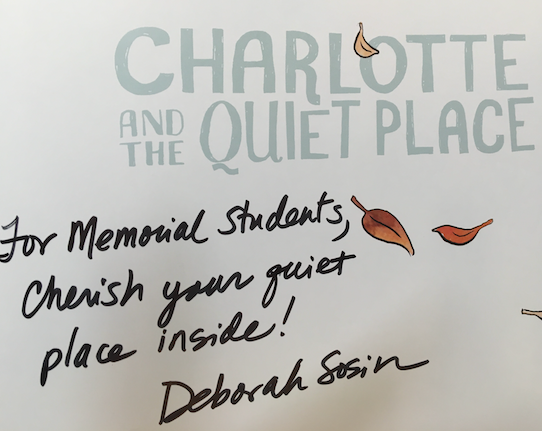 CHARLOTTE
AND THE QUIET PLACE
For Memorial Students,
Cherish your quiet
place inside!
Deborah Sosin